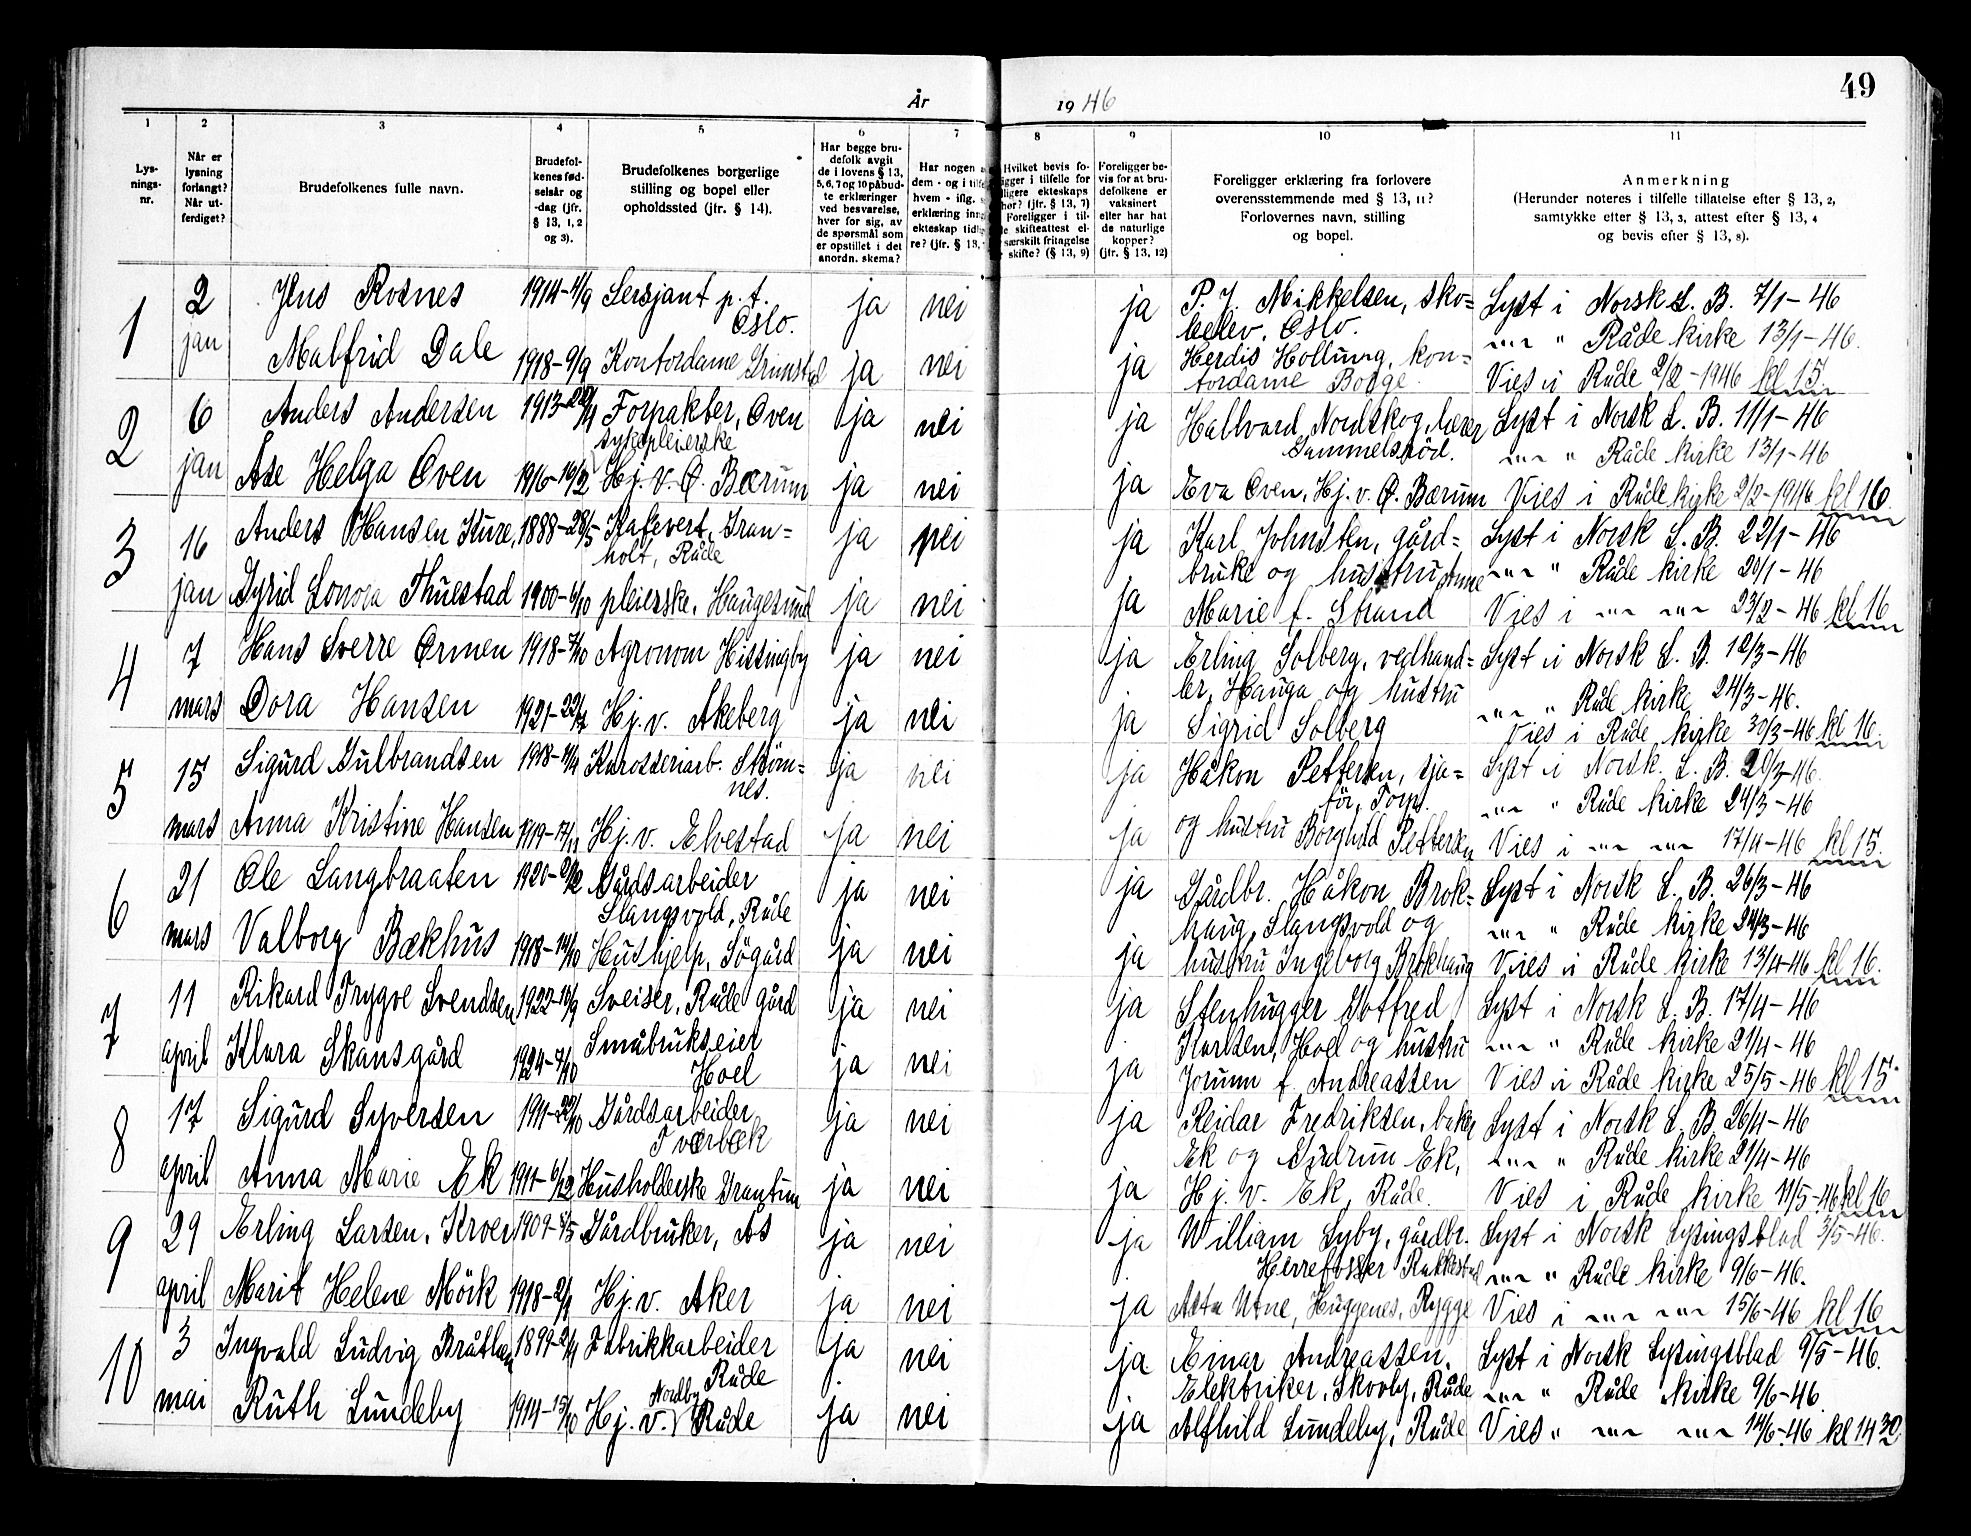 År 1946
49
1 2 3 4 5 6 7 8 9 10 11
Lys-
nings-
nr.
Når er
lysning
forlangt?
Når ut-
ferdiget?
Brudefolkenes fulle navn.
Brudefol-
kenes fød-
selsår og
-dag (jfr.
§ 13, 1, 2
og 3).
Brudefolkenes borgerlige
stilling og bopel eller
opholdssted (jfr. § 14).
Har begge bru-
defolk avgit
de i lovens § 13,
5, 6, 7 og 10 påbud-
te erklæringer
ved besvarelse,
hver for sig, av
de spørsmål som
er opstillet i det
anordn. skema?
Har nogen
dem - og i
hvem - iflg.
erklæring
ekteskap
re? (jfr. § 13,
Hvilket bevis fo-
ligger i tilfelle for
ligere ekteskaps
hør? (jfr. § 13, 7)
Foreligger i til-
skifteattest el-
særskilt fritagelse
skifte? (§ 13, 9)
Foreligger be-
vis for at bru-
defolkene er
vaksinert
eller har hat
de naturlige
kopper?
(jfr. § 13, 12)
Foreligger erklæring fra forlovere
overensstemmende med § 13, 11?
Forlovernes navn, stilling
og bopel.
Anmerkning
(Herunder noteres i tilfelle tillatelse efter § 13, 2,
samtykke efter § 13, 3, attest efter § 13, 4
og bevis efter § 13, 8).
1 2 Jens Rosnes 1914-4/9 Sersjant p.t. ja nei ja P. J. Mikkelsen, sko- Lyst i Norsk L. B. 7/1-46
Oslo. Oslo. -"- " Råde kirke 13/1-46.
jan Malfrid Dale 1918-9/9 Kontordame Grimstad ja nei ja Herdis Hollung, kon-
tordame Borge. Vies i Råde 2/2-1946 kl 15
2 6 Anders Andersen 1913- Forpakter, Oven ja nei ja Hallvard Nordskog, lærer Lyst i Norsk L. B. 11/1-46
sykepleierske Gummelsrød. -"- " Råde kirke 13/1-46
jan Åse Helga Oven 1916-16/2 Hj. v. Ø. Bærum ja nei ja Eva Oven, Hj. v. Ø. Bærum Vies i Råde kirke 2/2-1946 kl 16.
3 16 Anders Hansen Kure, 1888-28/5 Kafevert, Gran- ja nei ja Karl Johnsten, gård- Lyst i Norsk L. B. 22/1-46
holt, Råde bruke og hustru Anne -"- " Råde kirke 20/1-46
jan Sigrid Lonora Thuestad 1900-6/10 pleierske, Haugesund ja nei ja Marie f. Strand Vies i -"- -"- 23/2-46 kl 16
4 7 Hans Sverre Ormen 1918-7/10 Agronom Hissingby ja nei ja Erling Solberg, vedhand- Lyst i Norsk L. B. 12/3-46
ler, Hauga og hustru -"- " Råde kirke 24/3-46.
mars Dora Hansen 1921-22/7 Hj. v. Åkeberg ja nei ja Sigrid Solberg Vies i Råde kirke 30/3-46 kl 16.
5 15 Sigurd Gulbrandsen 1918-11/4 Karosseriarb. Strøm- ja nei ja Håkon Pettersen, sja- Lyst i Norsk L. B. 20/3-46.
nes. før, Torp. -"- " Råde kirke 24/3-46
mars Anna Kristine Hansen 1919-17/11 Hj. v. Elvestad ja nei ja og hustru Borghild Pettersen Vies i -"- -"- 17/4-46 kl 15.
6 21 Ole Langbraaten 1920- Gårdsarbeider ja nei ja Gårdbr. Håkon Brok- Lyst i Norsk L. B. 26/3-46
Slangsvold, Råde haug, Slangsvold og -"- " Råde kirke 24/3-46
mars Valborg Bækhus 1918-14/10 Hushjelp, Søgård ja nei ja hustru Ingeborg Brokhaug Vies i Råde kirke 13/4-46 kl 16.
7 11 Rikard Trygve Svendsen 1922-16/9 Sveiser, Råde gård ja nei ja Stenhugger Gotfred Lyst i Norsk L. B. 17/4-46
Småbrukseier Karlsen, Hoel og hustru -"- " Råde kirke 21/4-46
april Klara Skansgård 1924-7/10 Hoel ja nei ja Jorunn f. Andreassen Vies i Råde kirke 25/5-46 kl 15
8 17 Sigurd Syversen 1911-22/10 Gårdsarbeider ja nei ja Reidar Fredriksen, baker Lyst i Norsk L. B. 26/4-46
Tværbæk Ek og Gudrun Ek, -"- " Råde kirke 21/4-46
april Anna Marie Ek 1911-6/12 Husholderske Grantun ja nei ja Hj. v. Ek, Råde. Vies i Råde kirke 11/5-46 kl 16
9 29 Erling Larsen, Kroer 1909-8/5 Gårdbruker, Ås ja nei ja William Lyby, gårdbr. Lyst i Norsk Lysingsblad 3/5-46.
Herrefosser Rakkestad -"- " Råde kirke 9/6-46.
april Marit Helene Mörk 1918-2/1 Hj. v. Aker ja nei ja Asta Utne, Huggenes, Rygge Vies i -"- -"- 15/6-46 kl 16
10 3 Ingvald Ludvig Bråthen 1899-2/11 Fabrikkarbeider ja nei ja Einar Andreassen, Lyst i Norsk Lysingsblad 9/5-46.
Råde Elektriker, Skovly, Råde -"- " Råde kirke 9/6-46.
mai Ruth Lundeby 1914-15/10 Hj. v. Nordby Råde ja nei ja Alfhild Lundeby, Råde Vies " -"- -"- 14/6-46 kl 14 30